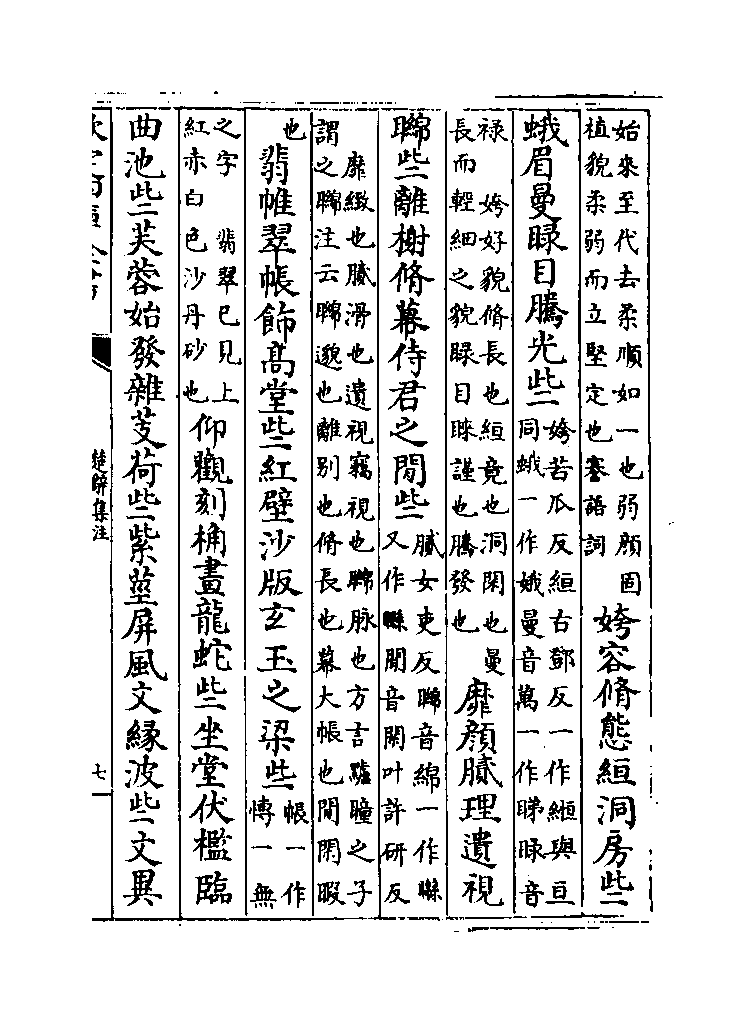 始來至代去柔順如一也弱顔固
植貌柔弱而立堅定也謇語詞
姱容脩態絙洞房些
蛾眉曼睩目騰光些
姱苦瓜反絙古鄧反一作緪與亘
同蛾一作娥曼音萬一作睇睩音
禄　姱好貌脩長也絙竟也洞閑也曼
長而輕細之貌睩目睞謹也騰發也
靡顔膩理遺視
矊些離榭脩幕侍君之閒些
膩女吏反矊音綿一作
又作閒音閑叶許研反
靡緻也膩滑也遺視竊視也矊脉也方言驢瞳之子
謂之矊注云矊邈也離别也脩長也幕大帳也閒閑暇
也
翡帷翠帳飾髙堂些紅壁沙版玄玉之梁些
帳一作
慱一無
之字　翡翠已見上
紅赤白色沙丹砂也
仰觀刻桷畫龍蛇些坐堂伏檻臨
曲池些芙蓉始發雜芰荷些紫莖屏風文緣波些文異
楚辭集注
七